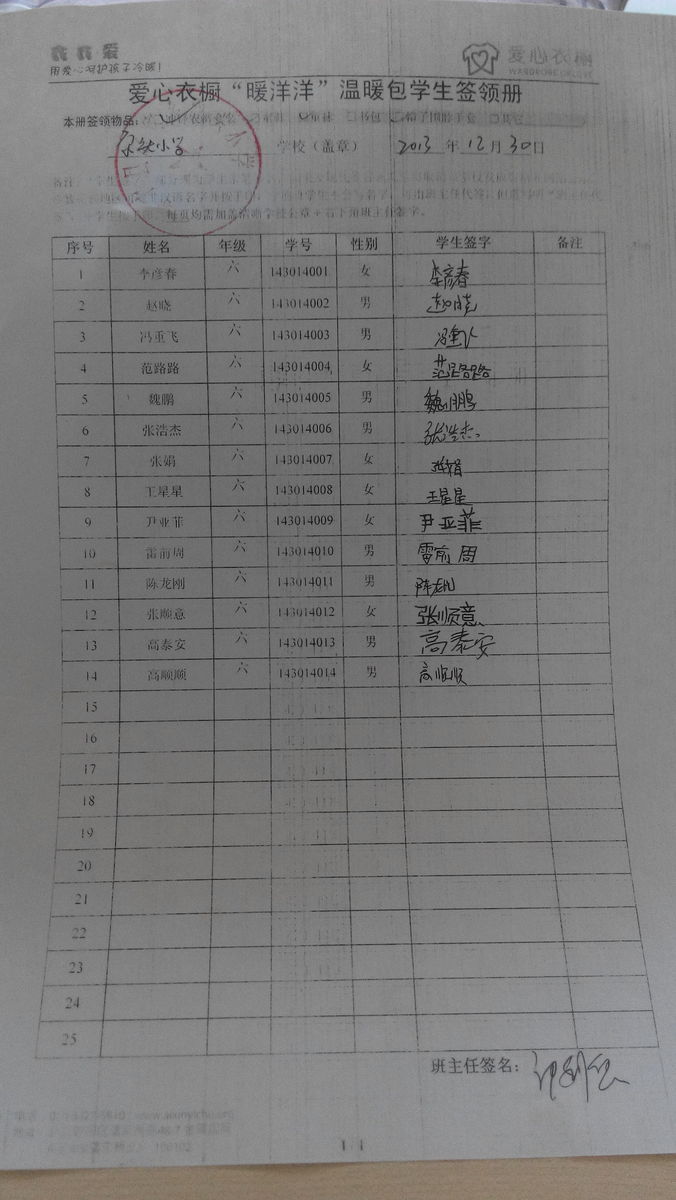 用爱心呵护孩子冷暖！
爱心衣橱
WARDROBE OF LOVE
爱心衣橱“暖洋洋”温暖包学生签领册
本册签领物品：
小学 学校（盖章） 2013 年 12 月 30 日
每页均需加盖清晰学校公章+右下角班主任签字。
序号 姓名 年级 学号 性别 学生签字 备注
1 李彦春 六 143014001 女 李彦春
2 赵晓 六 143014002 男 赵晓
3 冯重飞 六 143014003 男 冯重飞
4 范路路 六 143014004 女 范路路
5 魏鹏 六 143014005 男 魏鹏
6 张浩杰 六 143014006 男 张浩杰
7 张娟 六 143014007 女 张娟
8 王星星 六 143014008 女 王星星
9 尹亚菲 六 143014009 女 尹亚菲
10 雷前周 六 143014010 男 雷前周
11 陈龙刚 六 143014011 男 陈龙刚
12 张顺意 六 143014012 女 张顺意
13 高泰安 六 143014013 男 高泰安
14 高顺顺 六 143014014 男 高顺顺
15
16
17
18
19
20
21
22
23
24
25
班主任签名：